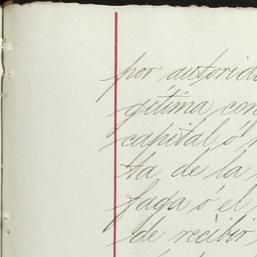 por autorid
gitima con
capital ó
ta de la
faga ó el
de recibir